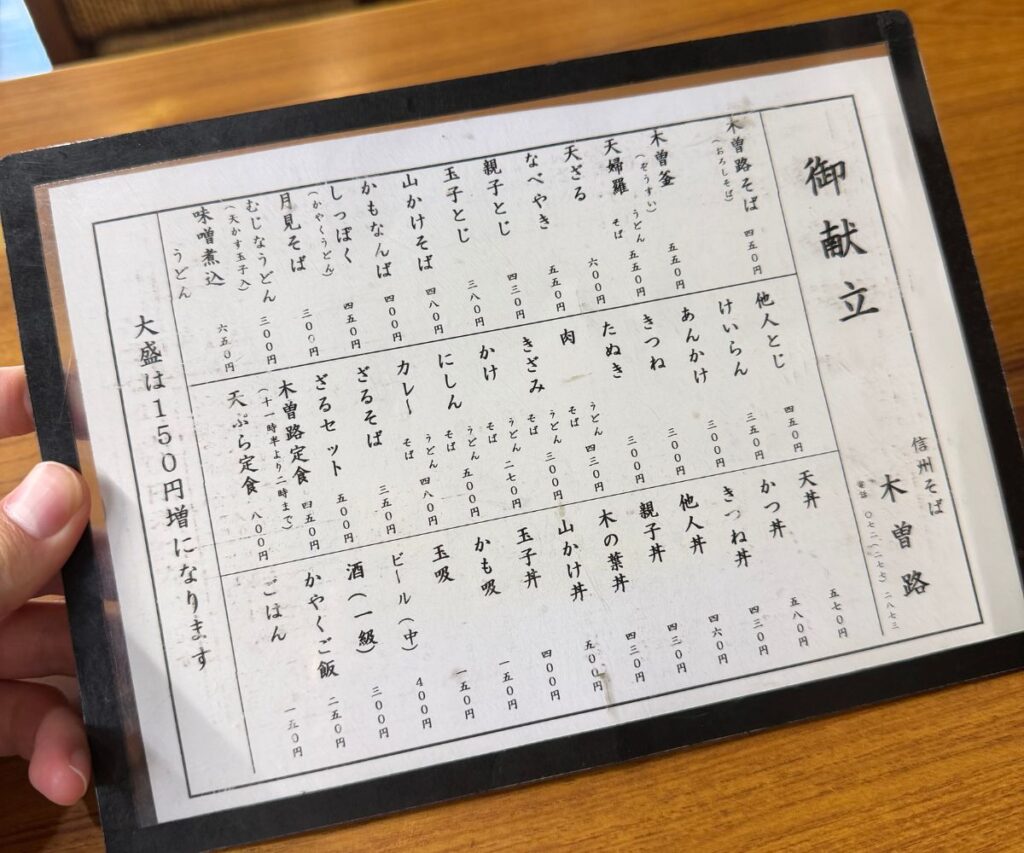 御献立
信州そば
木曽路
電話
木曽路そば 四五〇円
(おろしそば)
木曽釜 五五〇円
(ぞうすい)
天婦羅 うどん そば 五五〇円
天ざる 六〇〇円
なべやき 五五〇円
親子とじ 四三〇円
玉子とじ 三八〇円
山かけそば 四八〇円
かもなんば 四〇〇円
しっぽく 四五〇円
(かやくうどん)
月見そば 三〇〇円
むじなうどん 三〇〇円
(天かす玉子入)
味噌煮込うどん 六五〇円
他人とじ 四五〇円
けいらん 三五〇円
あんかけ 三〇〇円
きつね 三〇〇円
たぬき 三〇〇円
肉 うどん そば 四三〇円
きざみ うどん そば 三〇〇円
かけ うどん そば 二七〇円
にしん うどん そば 五〇〇円
カレー うどん そば 四八〇円
ざるそば 三五〇円
ざるセット 五〇〇円
木曽路定食 四五〇円
(十一時半より二時まで)
天ぷら定食 八〇〇円
天丼 五七〇円
かつ丼 五八〇円
きつね丼 四三〇円
他人丼 四六〇円
親子丼 四三〇円
木の葉丼 四三〇円
山かけ丼 五〇〇円
玉子丼 四〇〇円
かも吸 一五〇円
玉吸 一五〇円
ビール(中) 400円
酒(一級) 三〇〇円
かやくご飯 二五〇円
ごはん 一五〇円
大盛は150円増になります